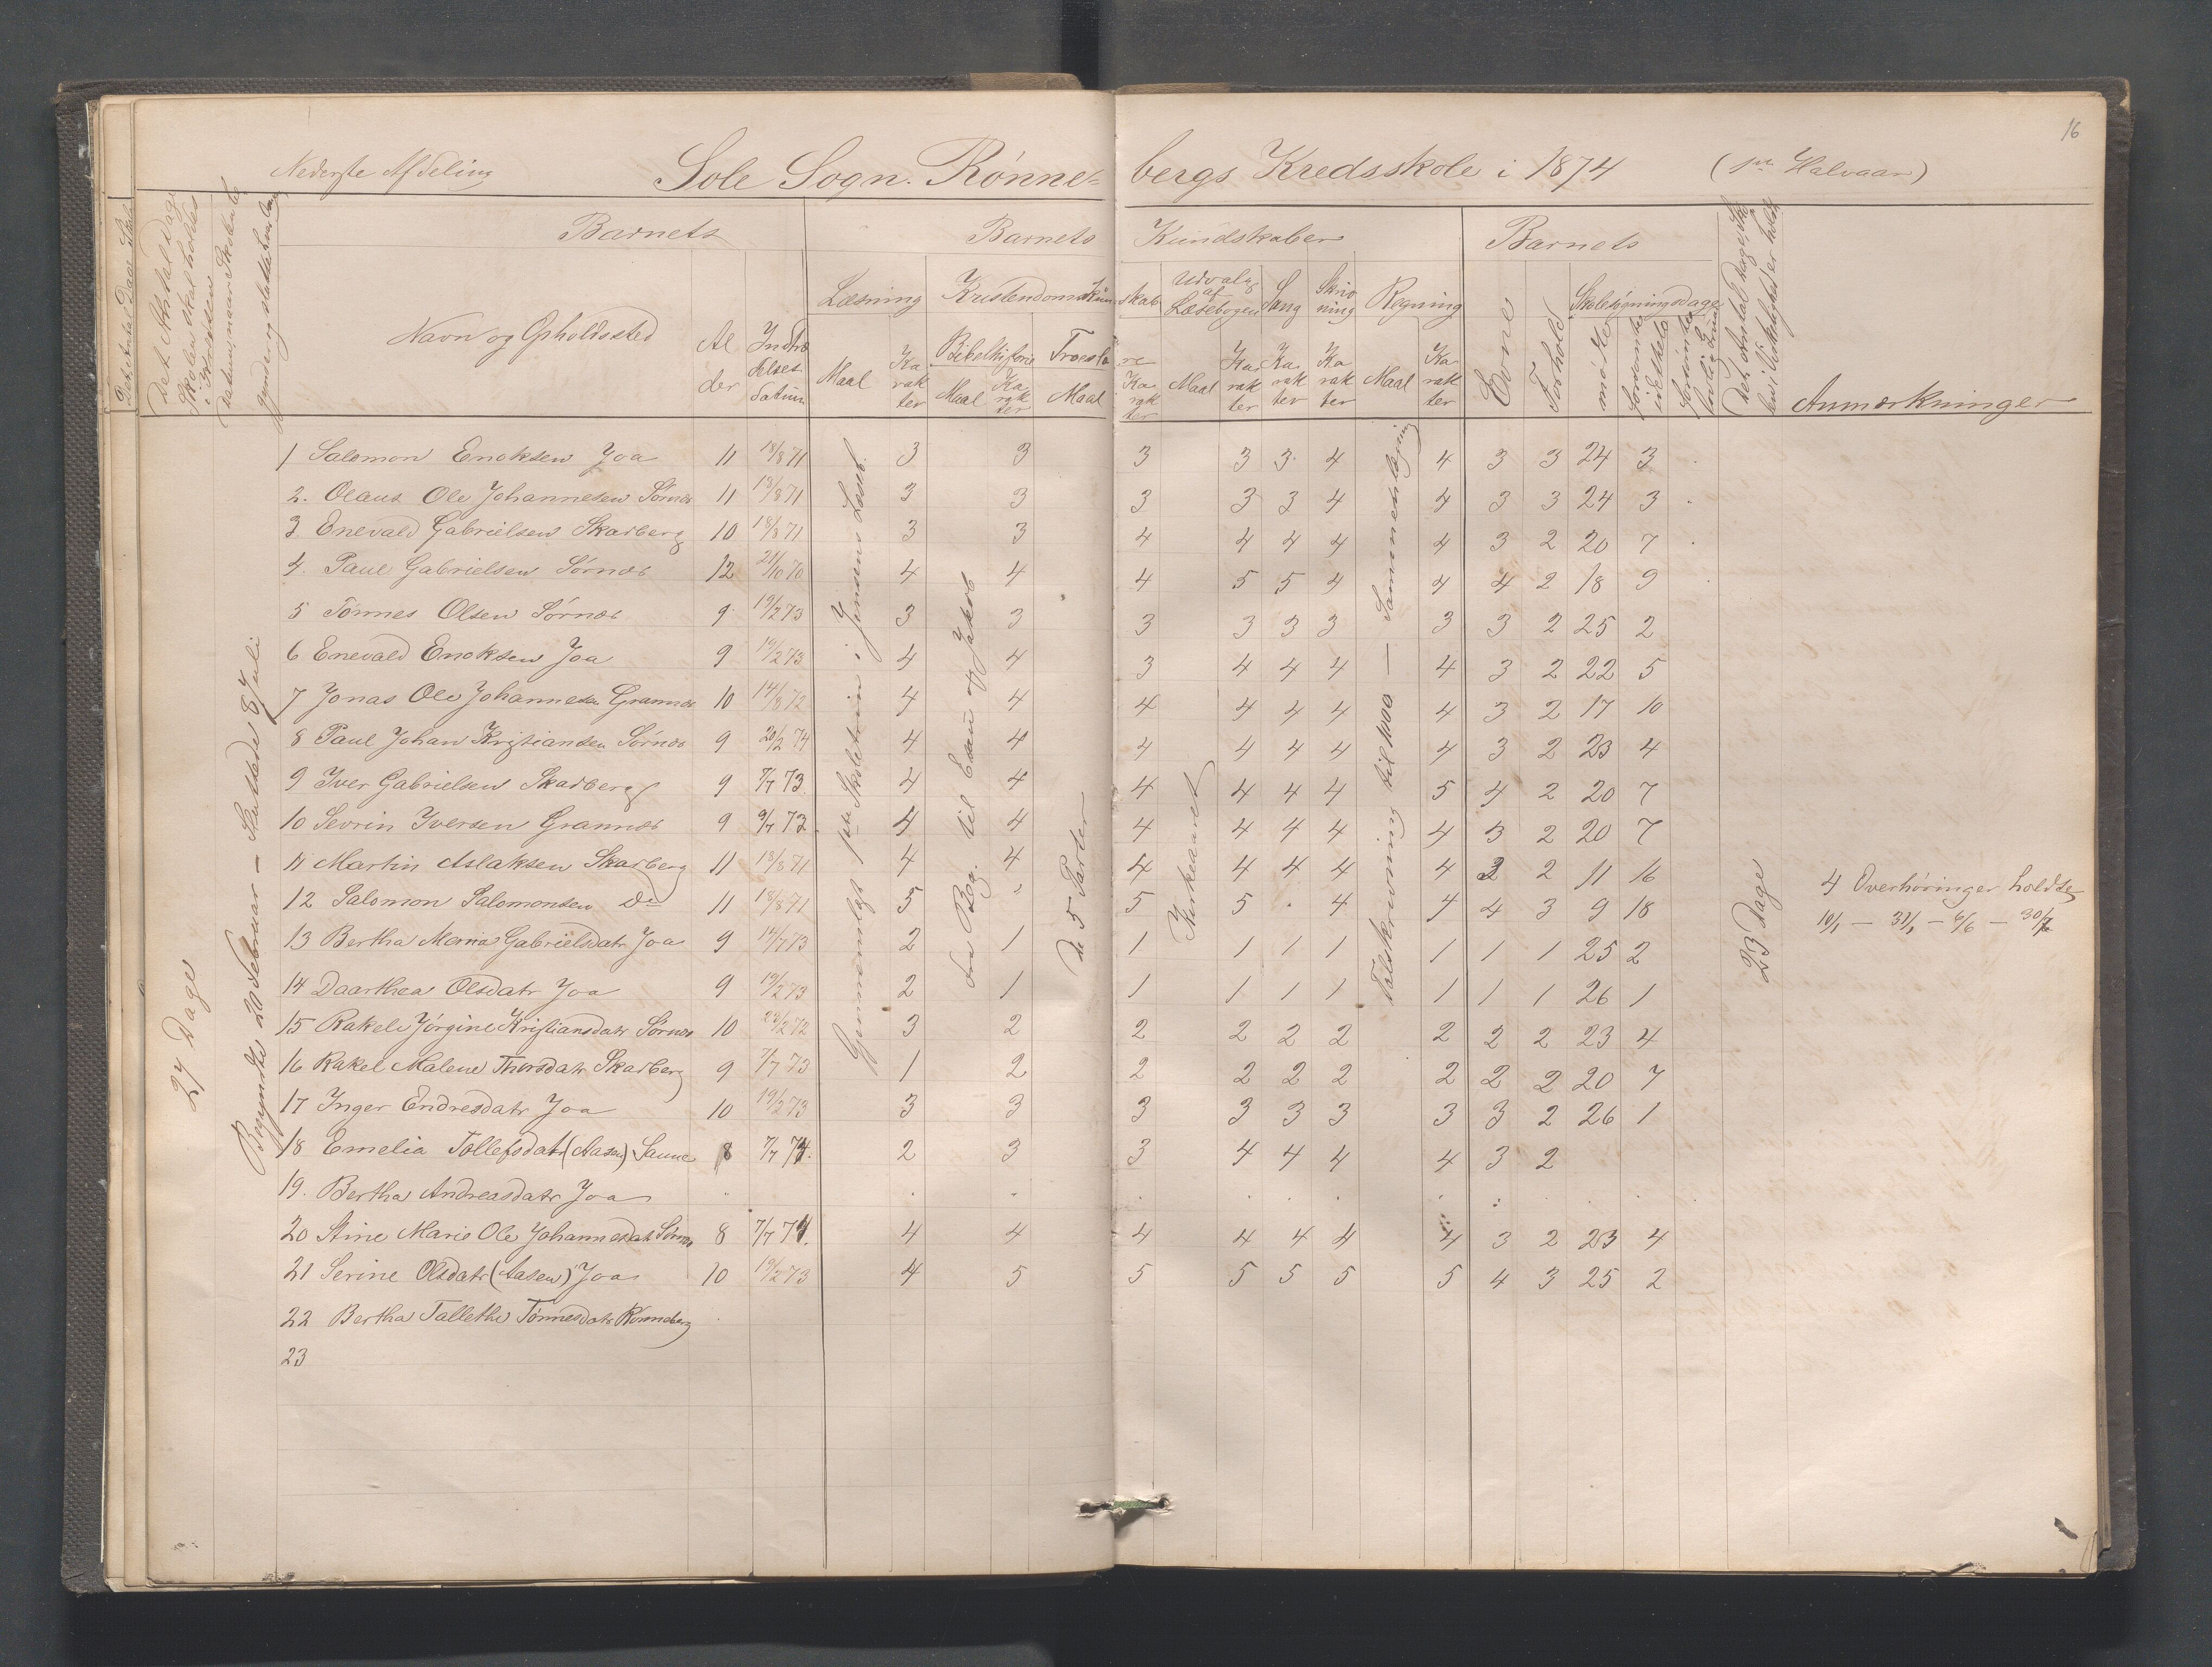 16
Nederste Afdeling
Sole Sogn. Rønne= bergs Kredsskole i 1874 (1ste Halvaar)
Det Antal Dage Skolen skal holdes i Kredsen
Datum, naar Skolen begynder og slutter hver Omgang
Barnets
Barnets Kundskaber
Barnets
Navn og Opholdssted
Al der
Indtræ delses datum
Læsning
Maal
Ka rak ter
Kristendomskun skab
Bibelhistorie
Maal
Ka rak ter
Troeslæ re
Maal
Ka rak ter
Udvalg af Læsebogen
Maal
Ka rak ter
Sang
Ka rak ter
Skriv ning
Ka rak ter
Regning
Maal
Ka rak ter
Evne
Forhold
Skolesøgningsdage
mødte
forsømte i det Hele
forsømte af lovlig Grund
Det Antal Dage, Sko len i Virkelighed er holdt
Anmærkninger
27 Dage
Begyndte 20 Februar — Sluttede 8 Juli
Gjennemlæst 1ste Skoletrin i Jensens Læseb.
fra Beg. til Esau og Jakob
de 5 Parter
Kirkeaaret
Talskrivning til 1000 — Sammenlægning
23 Dage
1 Salomon Enoksen Joa 11 18/8 71 3 3 3 3 3 4 4 3 3 24 3
2. Olaus Ole Johannesen Sørnæs 11 13/8 71 3 3 3 3 3 4 4 3 3 24 3
3 Enevald Gabrielsen Skarberg 10 18/8 71 3 3 4 4 4 4 4 3 2 20 7
4. Paul Gabrielsen Sørnæs 12 21/10 70 4 4 4 5 5 4 4 4 2 18 9
5 Tønnes Olsen Sørnæs 9 19/2 73 3 3 3 3 3 3 3 3 2 25 2
6 Enevald Enoksen Joa 9 19/2 73 4 4 3 4 4 4 4 3 2 22 5
7 Jonas Ole Johannesen Grannæs 10 14/8 72 4 4 4 4 4 4 4 3 2 17 10
8 Paul Johan Kristiansen Sørnæs 9 20/2 74 4 4 4 4 4 4 4 3 2 23 4
9 Iver Gabrielsen Skarberg 9 7/7 73. 4 4 4 4 4 4 5 4 2 20 7
10 Sevrin Iversen Grannæs 9 9/7 73. 4 4 4 4 4 4 4 3 2 20 7
11 Martin Aslaksen Skarberg 11 18/8 71 4 4 4 4 4 4 4 3 2 11 16
12 Salomon Salomonsen Do 11 18/8 71 5 " 5 5 . 4 4 4 3 9 18
13 Bertha Maria Gabrielsdatr Joa 9 14/7 73 2 1 1 1 1 1 1 1 1 25 2
14 Daarthea Olsdatr Joa 9 19/2 73 2 1 1 1 1 1 1 1 1 26 1
15 Rakel Jørgine Kristiansdatr Sørnæs 10 23/2 72 3 2 2 2 2 2 2 2 2 23 4
16 Rakel Malene Thorsdatr Skarberg 9 7/7 73 1 2 2 2 2 2 2 2 2 20 7
17 Inger Endresdatr Joa 10 19/2 73 3 3 3 3 3 3 3 3 2 26 1
18 Emelia Tollefsdatr (Aasen) Saune 8 7/7 74. 2 3 3 4 4 4 4 3 2
19. Bertha Andreasdatr Joa
20 Stine Marie Ole Johannesdatr Sørnæs 8 7/7 74. 4 4 4 4 4 4 4 3 2 23 4
21 Serine Olsdatr (Aasen) Joa 10 19/2 73 4 5 5 5 5 5 5 4 3 25 2
22 Bertha Tallethe Tønnesdatr Rønneberg
23
4 Overhøringer holdte
10/1 — 31/1 — 6/6 — 30/6